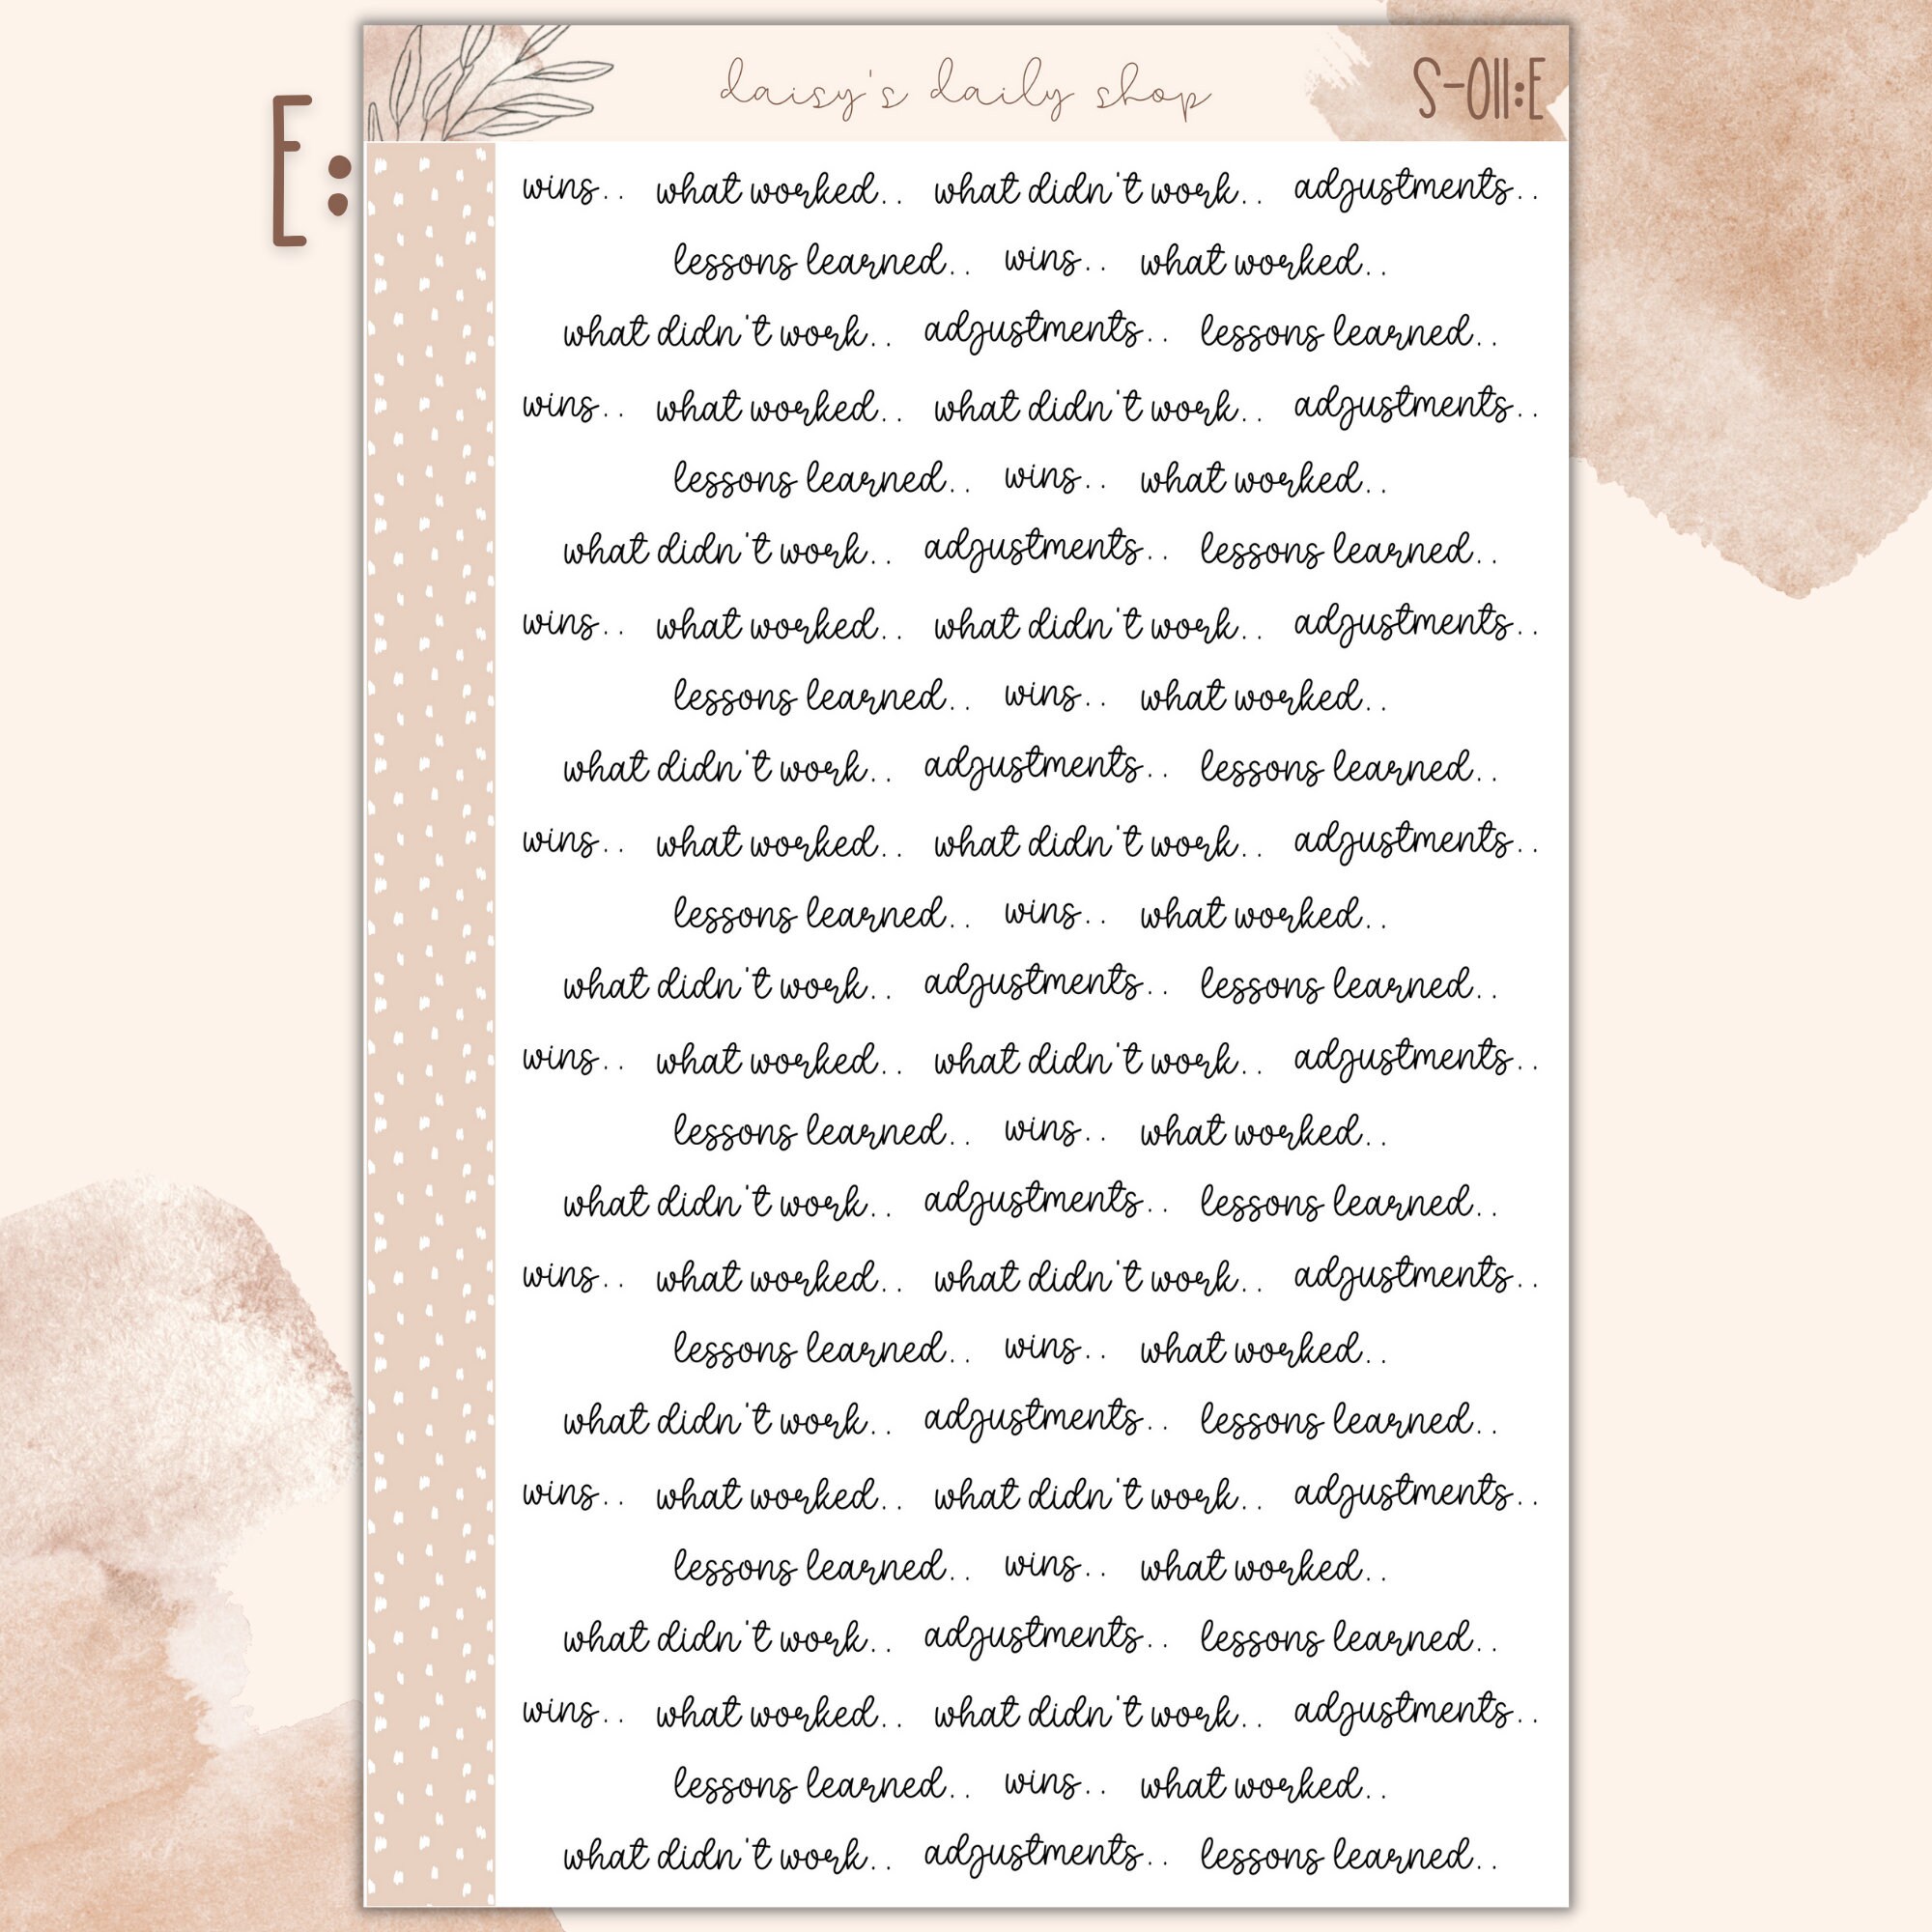 E:
daisy's daily shop S-011:E
wins.. what worked.. what didn't work.. adjustments..
lessons learned.. wins.. what worked..
what didn't work.. adjustments.. lessons learned..
wins.. what worked.. what didn't work.. adjustments..
lessons learned.. wins.. what worked..
what didn't work.. adjustments.. lessons learned..
wins.. what worked.. what didn't work.. adjustments..
lessons learned.. wins.. what worked..
what didn't work.. adjustments.. lessons learned..
wins.. what worked.. what didn't work.. adjustments..
lessons learned.. wins.. what worked..
what didn't work.. adjustments.. lessons learned..
wins.. what worked.. what didn't work.. adjustments..
lessons learned.. wins.. what worked..
what didn't work.. adjustments.. lessons learned..
wins.. what worked.. what didn't work.. adjustments..
lessons learned.. wins.. what worked..
what didn't work.. adjustments.. lessons learned..
wins.. what worked.. what didn't work.. adjustments..
lessons learned.. wins.. what worked..
what didn't work.. adjustments.. lessons learned..
wins.. what worked.. what didn't work.. adjustments..
lessons learned.. wins.. what worked..
what didn't work.. adjustments.. lessons learned..